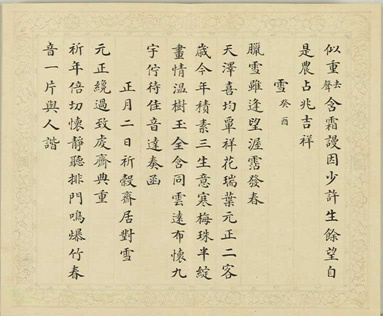 似重去聲含霜謾因少許生餘望自
是農占兆吉祥
雪癸酉
臘雪雖逢望渥霑發春
天澤喜均覃祥花瑞葉元正二客
歲今年積素三生意寒梅珠半綻
畫情溫樹玉全含同雲遠布懷九
宇佇待佳音達奏函
正月二日祈穀齋居對雪
元正纔過致虔齋典重
祈年倍切懷靜聽排門鳴爆竹春
音一片與人諧